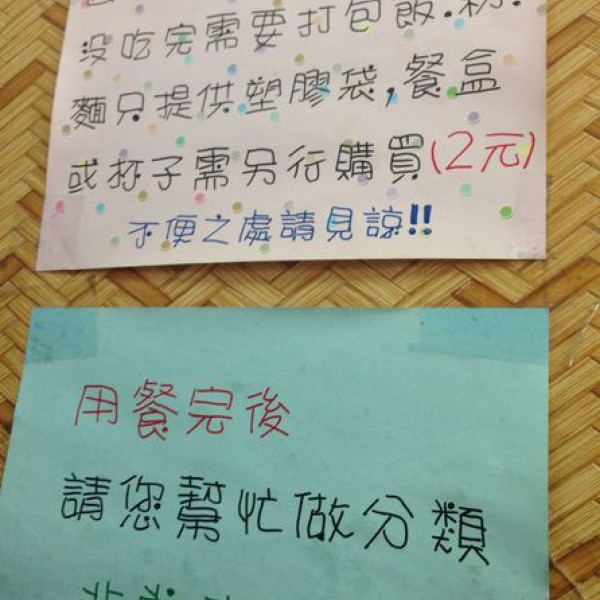 沒吃完需要打包飯.粉.
麵只提供塑膠袋,餐盒
或杯子需另行購買(2元)
不便之處請見諒!!
用餐完後
請您幫忙做分類